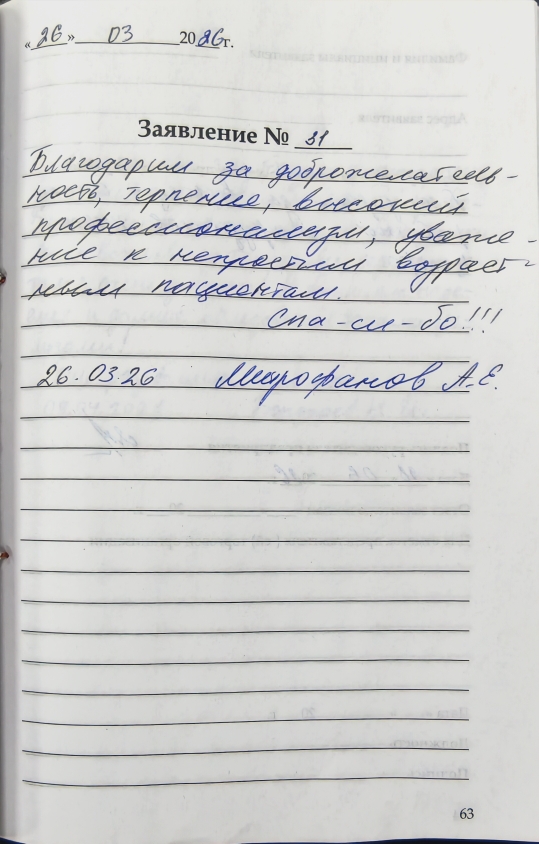 «26» 03 2026г.
Заявление № 31
Благодарим за доброжелатель-
ность, терпение, высокий
профессионализм, уваже-
ние к непростым возраст-
ным пациентам.
Спа-си-бо!!!
26.03.26 Митрофанов А.Е.
63